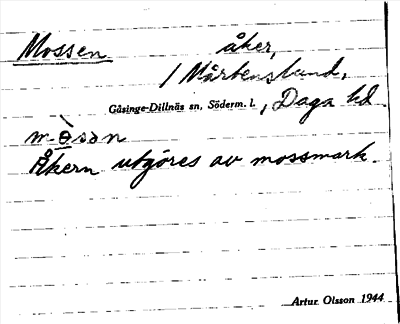 Mossen åker,
/ Mårtenslund,
Gåsinge-Dillnäs sn, Söderm. l., Daga hd
Åkern utgöres av mossmark.
Artur Olsson 1944